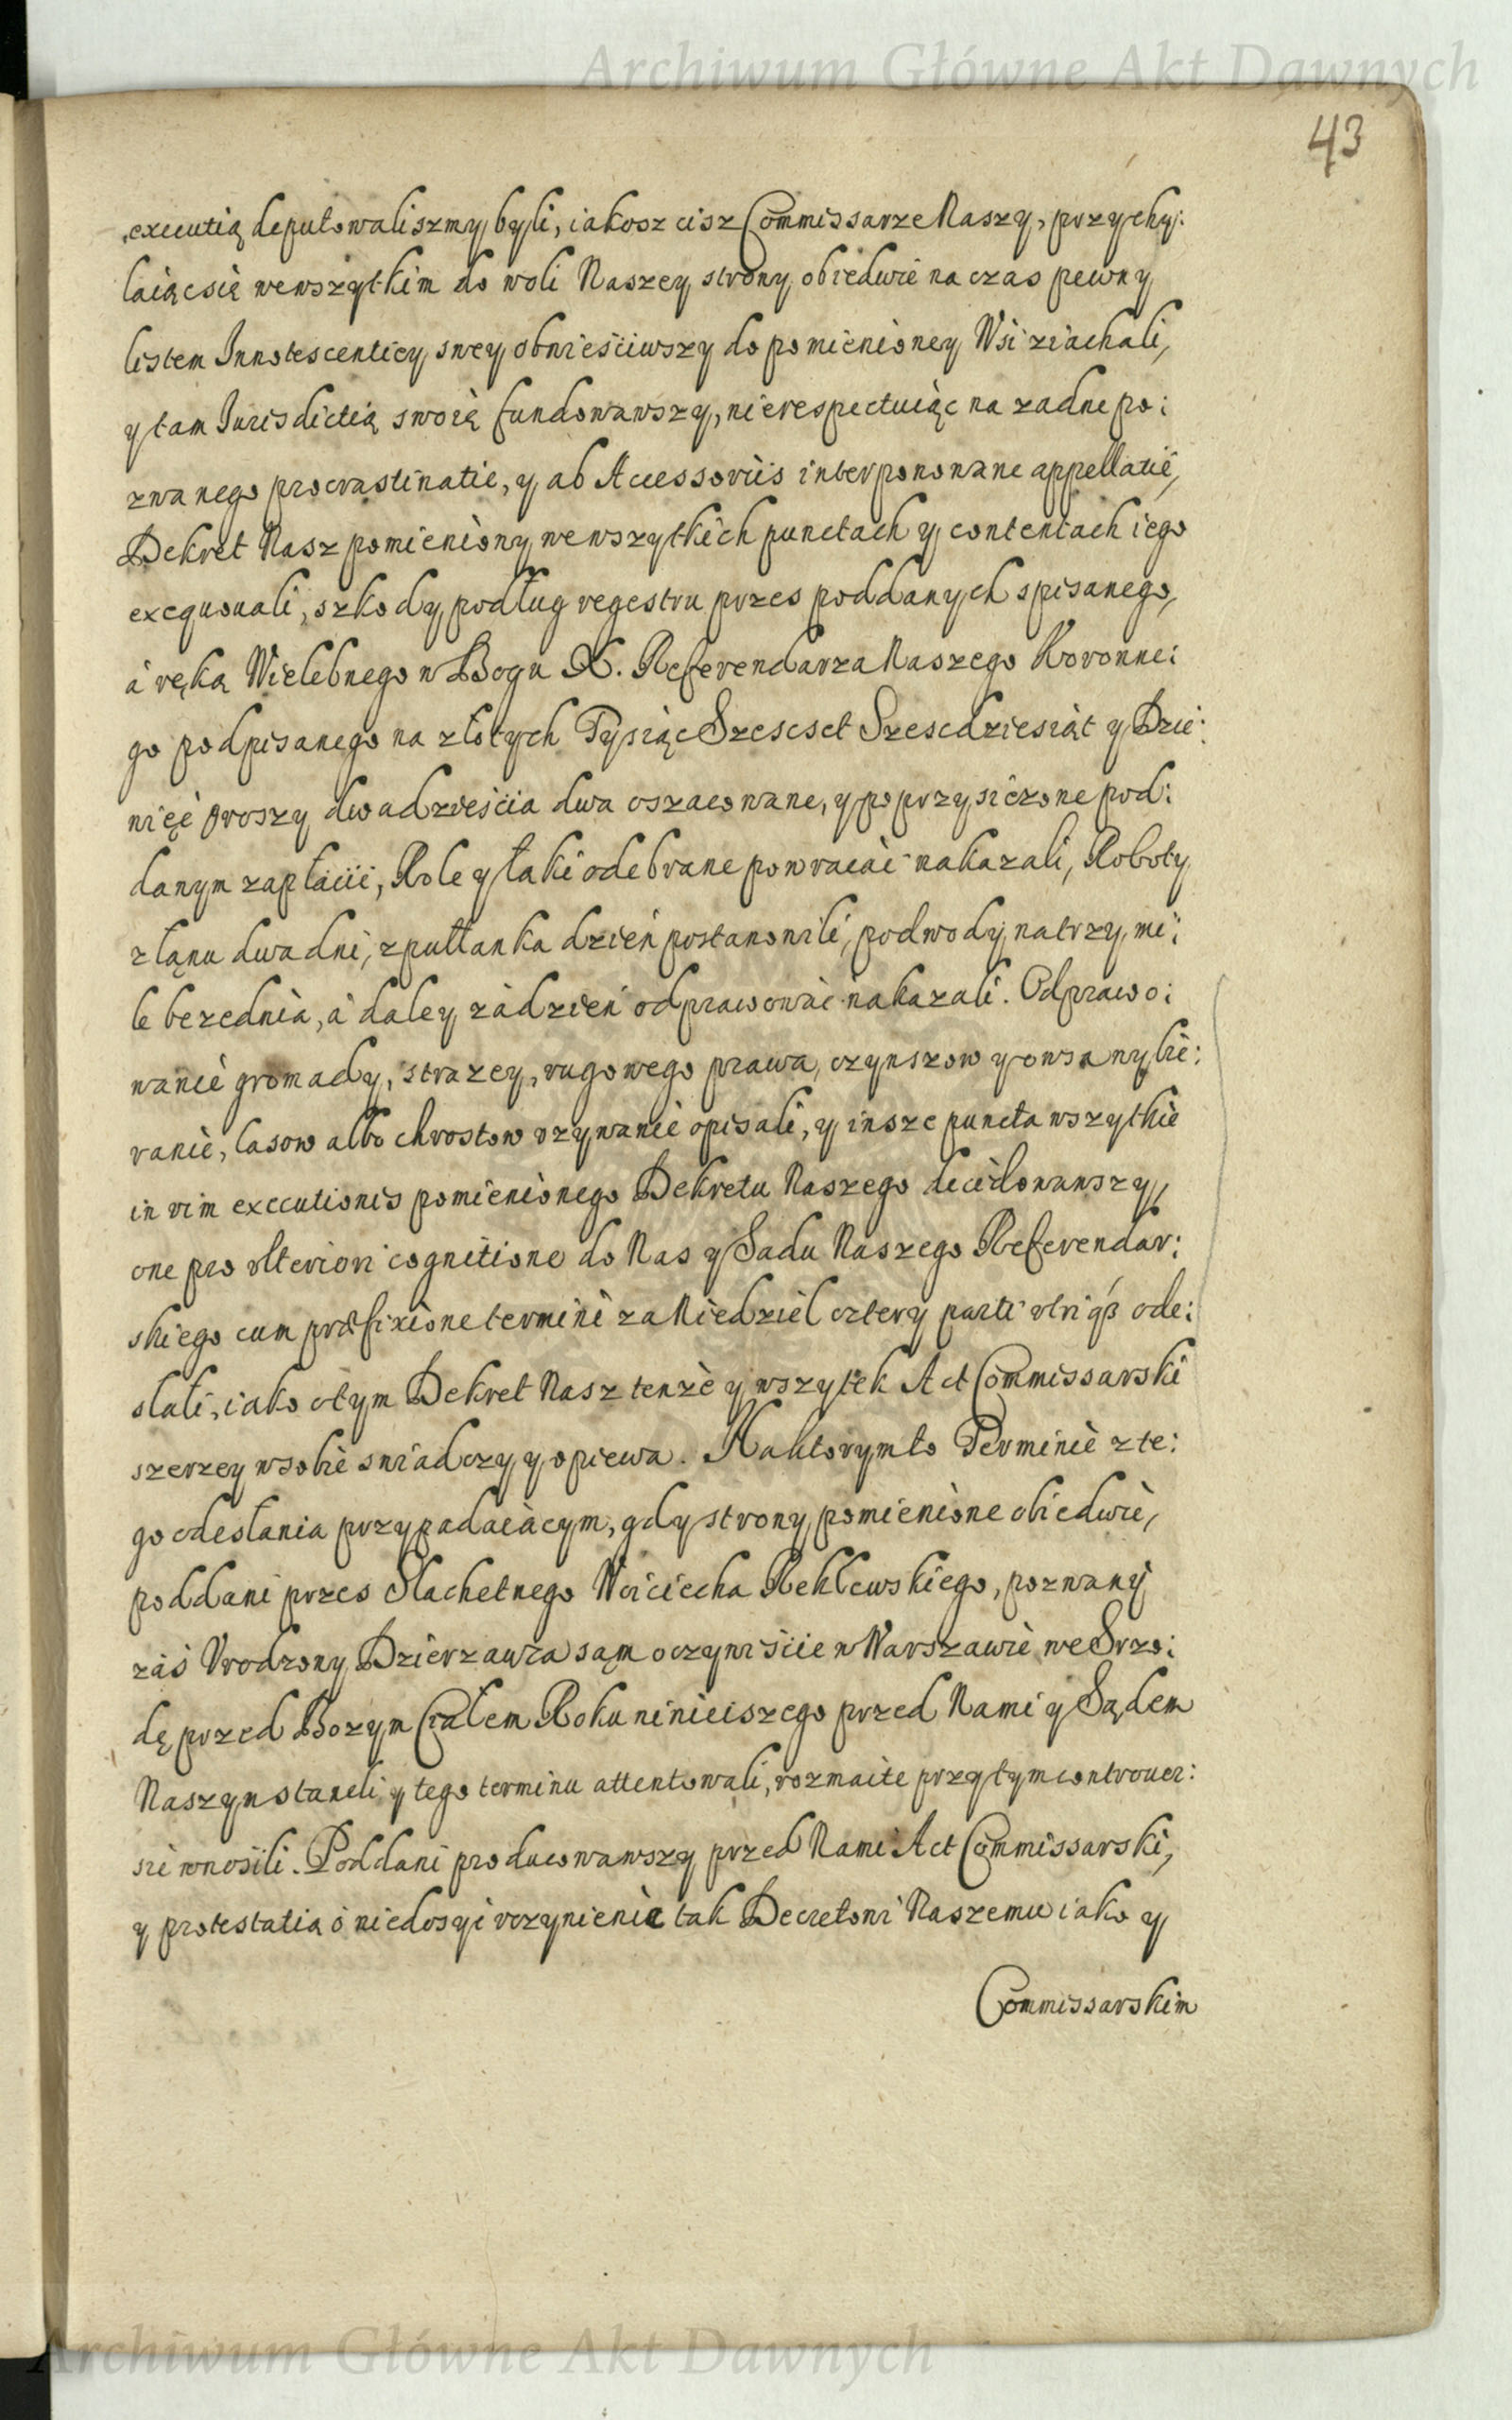 Archiwum Główne Akt Dawnych
43
executią deputowaliszmy byli, iakosz cisz Commissarze Naszy, przychy:
laiącsię wewszytkim do woli Naszey strony obiedwie na czas pewny
listem Innotescenticy swey obwieściwszy do pomienioney Wsi ziachali,
y tam Jurisdictią swoię fundowawszy, nierespectuiąc na zadne po:
zwanego procrastinatie, y ab Accessoriis interponowane appellatie,
Dekret Nasz pomieniony wewszytkich punctach y contentach iego
exequouali, szkody podług regestru przes poddanych spisanego,
à ręką Wielebnego w Bogu X. Referendarza Naszego Koronne:
go podpisanego na złotych Tysiąc Szescset Szescdziesiąt y Dzie:
więć groszy dwadzieścia dwa oszacowane, y poprzysiężone pod:
danym zapłacić, Role y łąki odebrane powracać nakazali, Roboty
z łanu dwa dni, z pułłanka dzień postanowili, podwody na trzy mi:
le bezednia, à daley zàdzień odprawować nakazali. Odprawo:
wanie gromady, strazey, rugowego prawa, czynszow y owsa wybie:
ranie, lasow albo chrostow vzywanie opisali, y insze puncta wszytkie
in vim executionis pomienionego Dekretu Naszego decidowawszy,
one pro vlteriori cognitione do Nas y Sadu Naszego Referendar:
skiego cum præfixione termini za Niedziel cztery parti vtriqß ode:
słali, iako otym Dekret Nasz tenże y wszytek Act Commissarski
szerzey wsobie swiadczy y opiewa. Naktorymto Terminie z te:
go odesłania przypadaiącym, gdy strony pomienione obiedwie,
poddani przes Slachetnego Woiciecha Reklewskiego, pozwany
zaś Vrodzony Dzierzawca sąm oczywiście w Warszawie we Srzo:
dę przed Bozym Ciałem Roku ninieiszego przed Nami y Sądem
Naszym staneli y tego terminu attentowali, rozmaite przytym controuer:
sie wnosili. Poddani producowawszy przed Nami Act Commissarski,
y protestatią o niedosyć vczynienie tak Decretowi Naszemu iako y
Commissarskim
Archiwum Główne Akt Dawnych